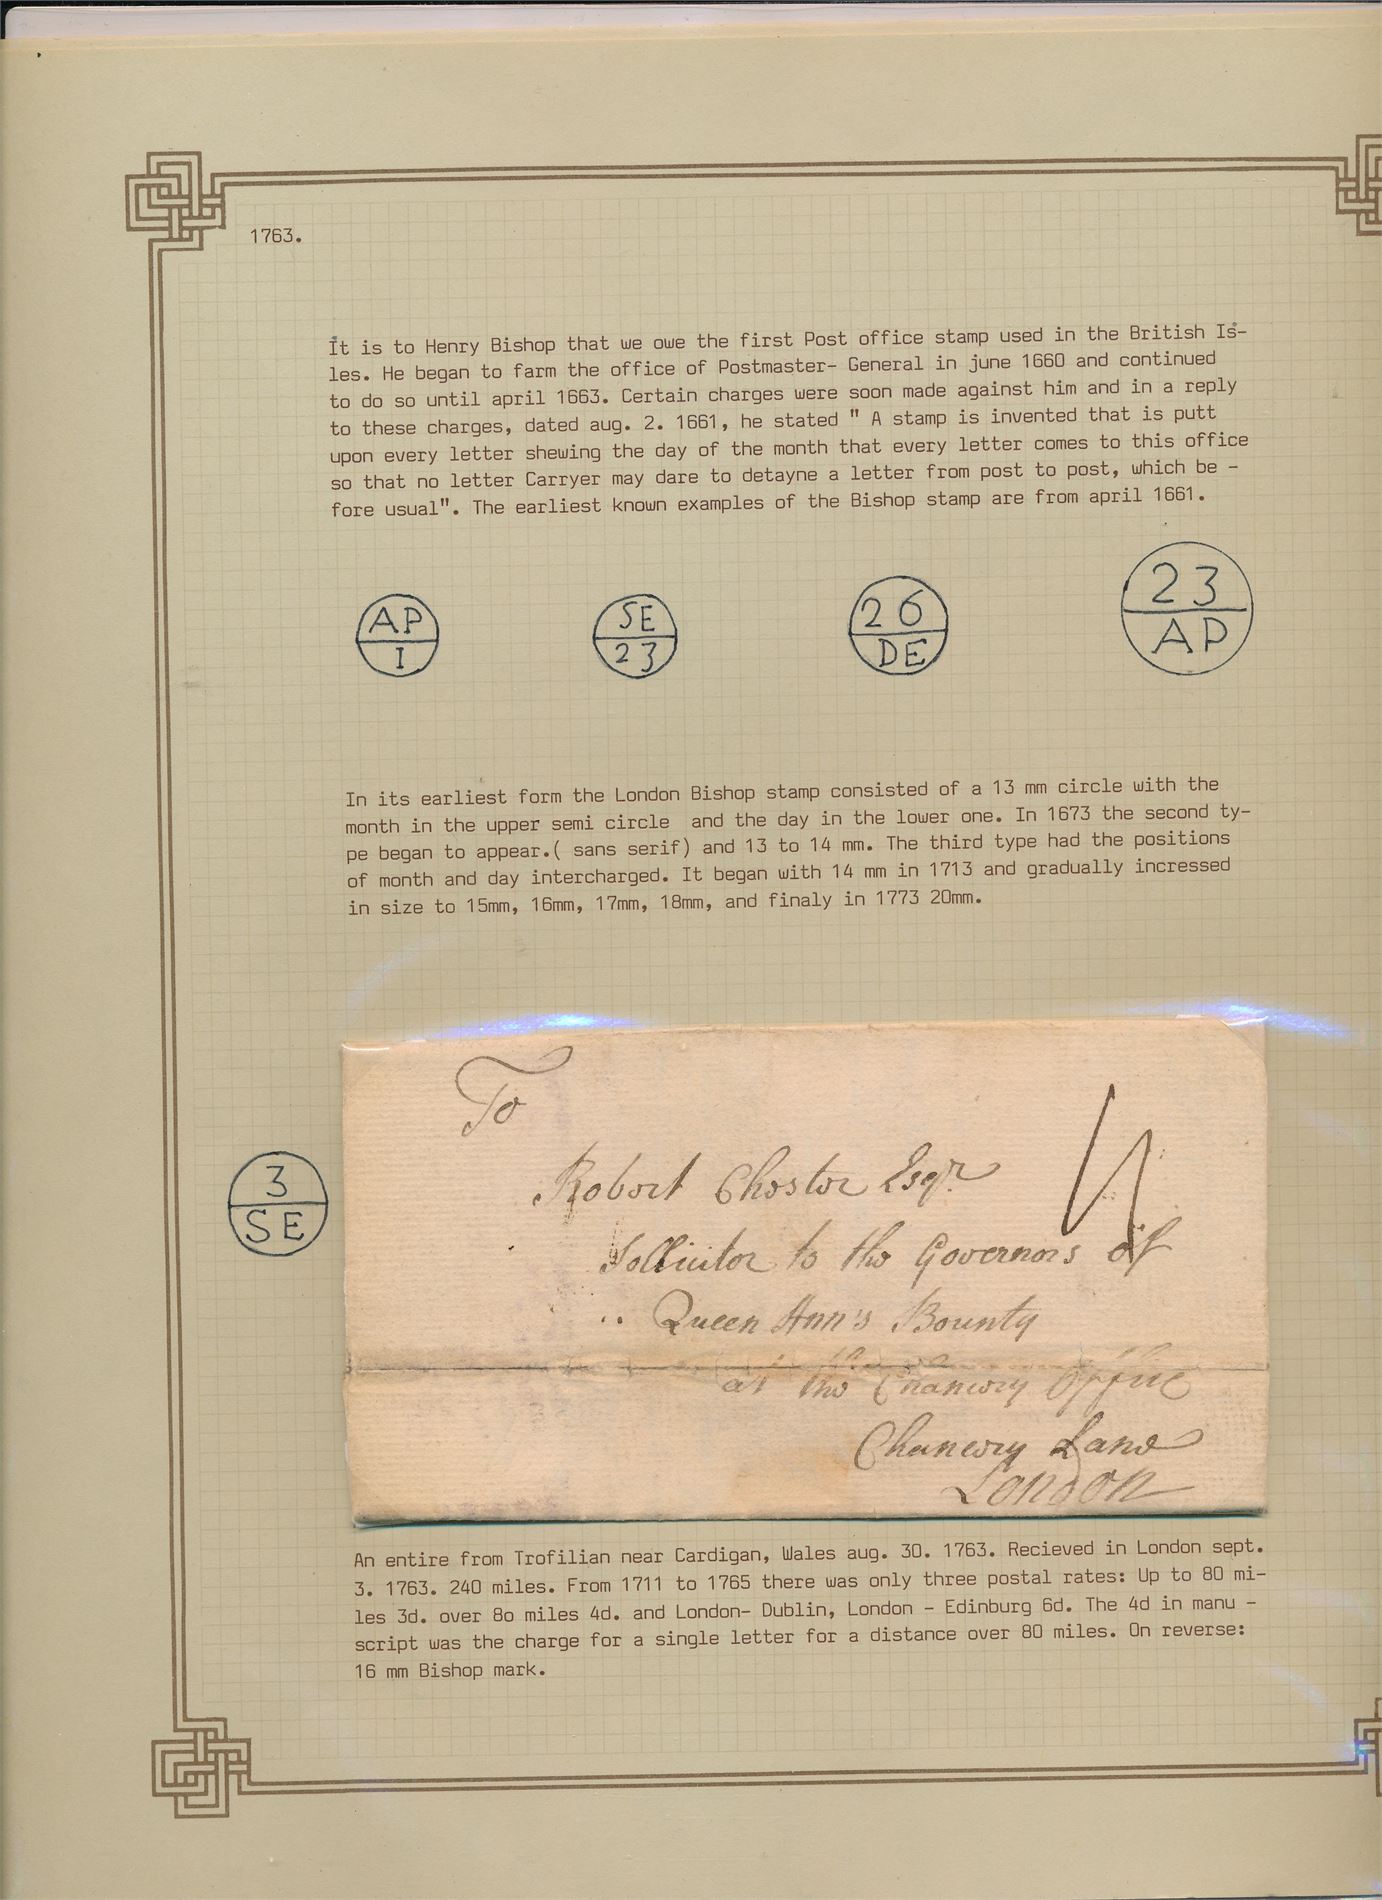 1763.
It is to Henry Bishop that we owe the first Post office stamp used in the British Is-
les. He began to farm the office of Postmaster- General in june 1660 and continued
to do so until april 1663. Certain charges were soon made against him and in a reply
to these charges, dated aug. 2. 1661, he stated " A stamp is invented that is putt
upon every letter shewing the day of the month that every letter comes to this office
so that no letter Carryer may dare to detayne a letter from post to post, which be -
fore usual". The earliest known examples of the Bishop stamp are from april 1661.
AP
I
SE
23
26
DE
23
AP
In its earliest form the London Bishop stamp consisted of a 13 mm circle with the
month in the upper semi circle  and the day in the lower one. In 1673 the second ty-
pe began to appear.( sans serif) and 13 to 14 mm. The third type had the positions
of month and day intercharged. It began with 14 mm in 1713 and gradually incressed
in size to 15mm, 16mm, 17mm, 18mm, and finaly in 1773 20mm.
3
SE
To
4
Robert Chester Esqr
Sollicitor to the Governors of
Queen Ann's Bounty
at the Chancery Office
Chancery Lane
London
An entire from Trofilian near Cardigan, Wales aug. 30. 1763. Recieved in London sept.
3. 1763. 240 miles. From 1711 to 1765 there was only three postal rates: Up to 80 mi-
les 3d. over 8o miles 4d. and London- Dublin, London - Edinburg 6d. The 4d in manu -
script was the charge for a single letter for a distance over 80 miles. On reverse:
16 mm Bishop mark.